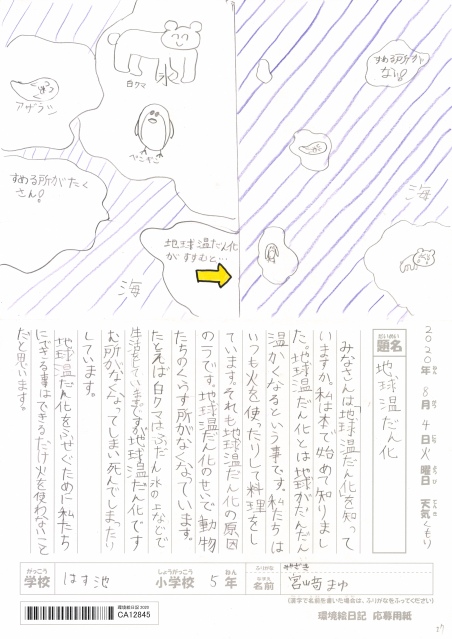 氷
白クマ
きゅっ
アザラシ
ぺこぺこ
すめる所がたく
さん!
海
地球温だん化
がすすむと…
すめる所が
ない!
海
2020年 8月 4日 火曜日 天気 くもり
題名
地球温だん化
みなさんは「地球温だん化」を知って
いますか。私は本で始めて知りまし
た。地球温だん化とは、地球がだんだん
温かくなるという事です。私たちは
いつも火を使ったりして料理をし
ています。それも地球温だん化の原因
の一つです。地球温だん化のせいで動物
たちのくらす所がなくなっています。
たとえば白クマはふだん氷の上などで
生活をしていますが地球温だん化です
む所がなくなってしまい死んでしまったり
しています。
地球温だん化をふせぐために私たち
にできる事はできるだけ火を使わないこと
だと思います。
がっこう
学校
はす池
しょうがっこう
小学校
5
ねん
年
ふりがな
なまえ
名前
宮崎まゆ
(漢字で名前を書いた場合は、ふりがなをふってください)
環境絵日記 2020
CA12845
環境絵日記 応募用紙